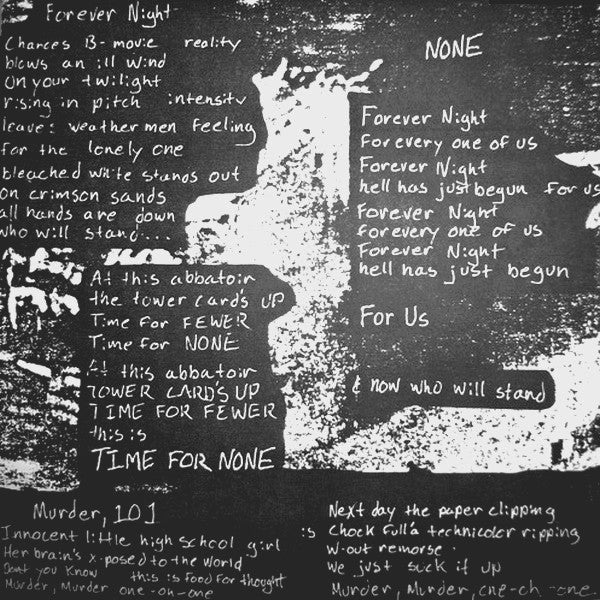 Forever Night
Chances B-movie reality
blows an ill wind
on your twilight
rising in pitch intensity
leaves weathermen feeling
for the lonely one
bleached white stands out
on crimson sands
all hands are down
who will stand...
At this abbatoir
the tower card's UP
Time for FEWER
Time for NONE
At this abbatoir
TOWER CARD'S UP
TIME FOR FEWER
this is
TIME FOR NONE
NONE
Forever Night
For every one of us
Forever Night
hell has just begun for us
Forever Night
for every one of us
Forever Night
hell has just begun
For Us
& now who will stand
Murder, 101
Innocent little high school girl
Her brain's x-posed to the world
Dont you know this is food for thought
Murder, Murder one-oh-one
Next day the paper clipping
is Chock full'a technicolor ripping
w-out remorse
we just suck it up
Murder, Murder, one-oh-one